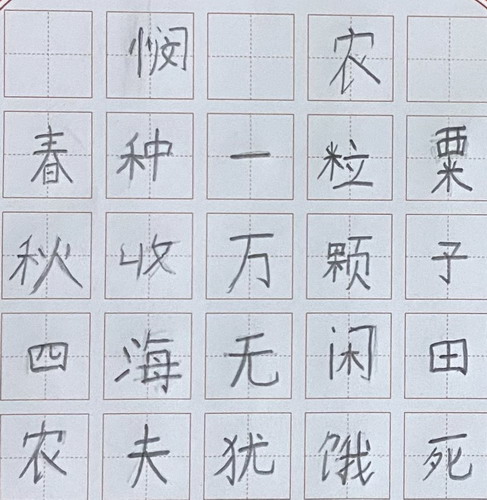 悯农
春种一粒粟
秋收万颗子
四海无闲田
农夫犹饿死